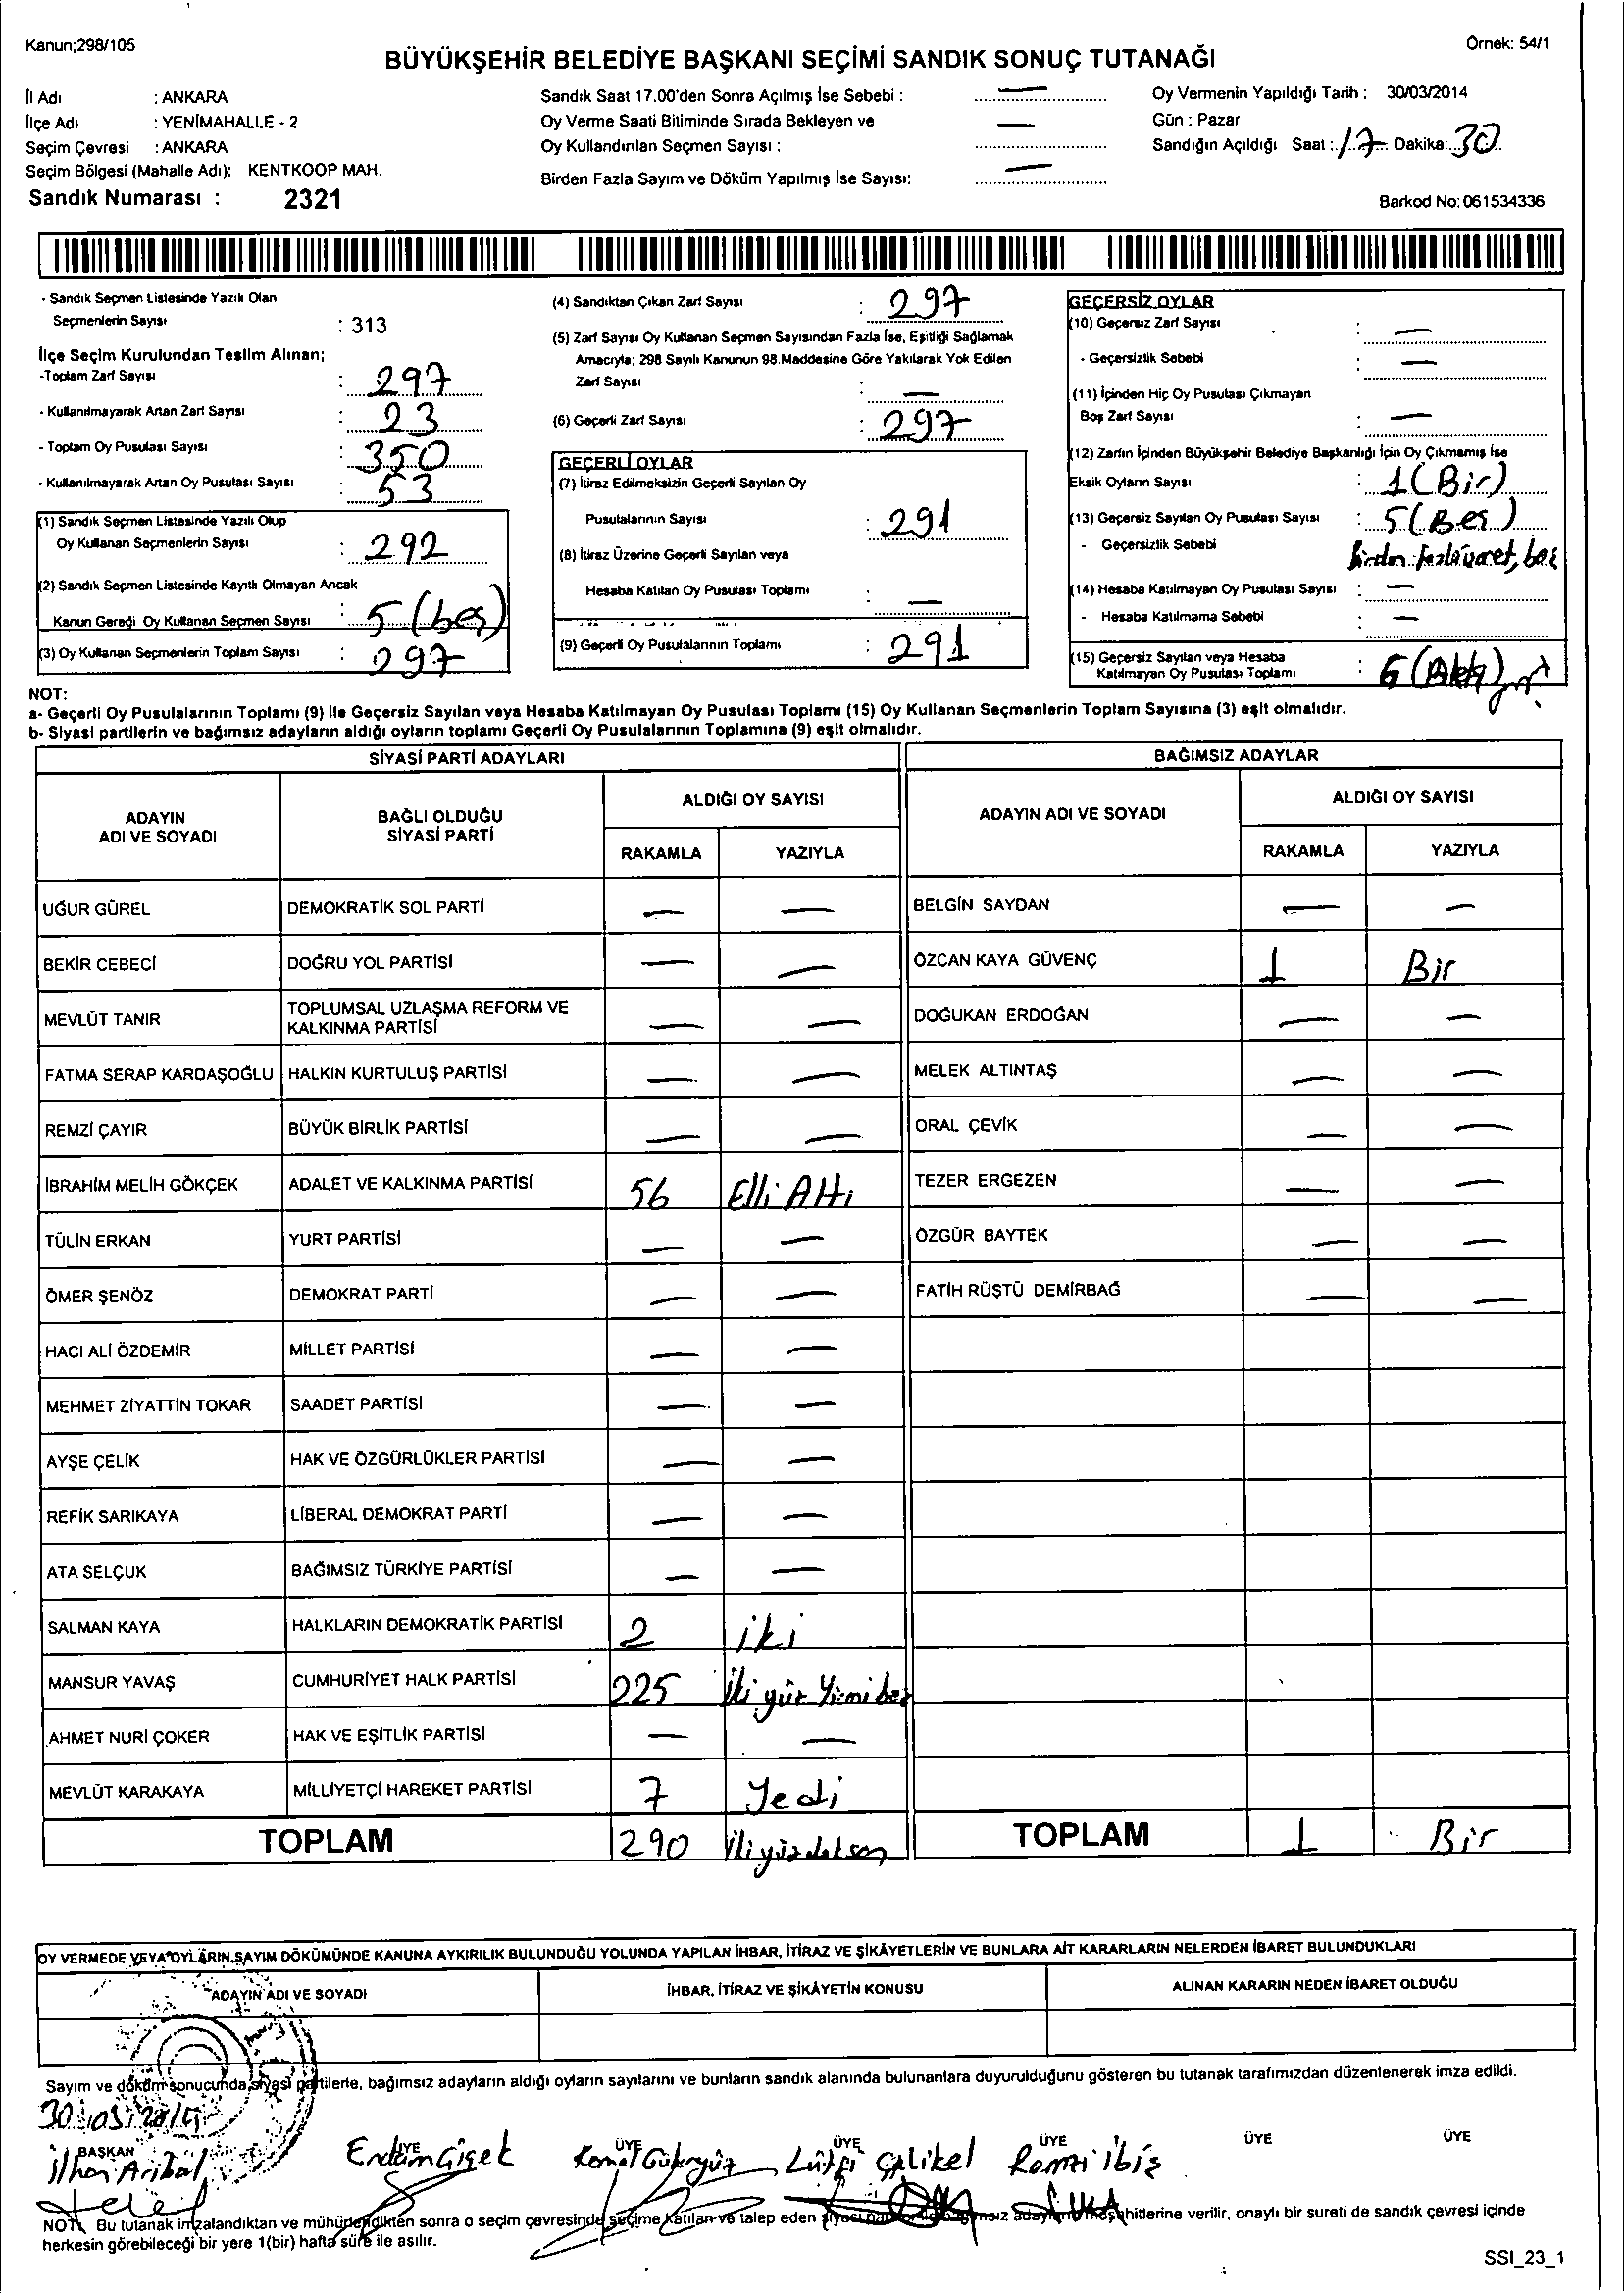 Kanun;298/105
Örnek: 54/1
BÜYÜKŞEHİR BELEDİYE BAŞKANI SEÇİMİ SANDIK SONUÇ TUTANAĞI
İl Adı : ANKARA
İlçe Adı : YENİMAHALLE - 2
Seçim Çevresi : ANKARA
Seçim Bölgesi (Mahalle Adı): KENTKOOP MAH.
Sandık Numarası : 2321
Sandık Saat 17.00'den Sonra Açılmış İse Sebebi : —
Oy Verme Saati Bitiminde Sırada Bekleyen ve
Oy Kullandırılan Seçmen Sayısı : —
Birden Fazla Sayım ve Döküm Yapılmış İse Sayısı: —
Oy Vermenin Yapıldığı Tarih : 30/03/2014
Gün : Pazar
Sandığın Açıldığı Saat : 17 Dakika: 30
Barkod No: 061534336
- Sandık Seçmen Listesinde Yazılı Olan
Seçmenlerin Sayısı : 313
İlçe Seçim Kurulundan Teslim Alınan;
-Toplam Zarf Sayısı : 297
- Kullanılmayarak Artan Zarf Sayısı : 23
- Toplam Oy Pusulası Sayısı : 350
- Kullanılmayarak Artan Oy Pusulası Sayısı : 53
(1) Sandık Seçmen Listesinde Yazılı Olup
Oy Kullanan Seçmenlerin Sayısı : 292
(2) Sandık Seçmen Listesinde Kayıtlı Olmayan Ancak
Kanun Gereği Oy Kullanan Seçmen Sayısı : 5 (beş)
(3) Oy Kullanan Seçmenlerin Toplam Sayısı : 297
(4) Sandıktan Çıkan Zarf Sayısı : 297
(5) Zarf Sayısı Oy Kullanan Seçmen Sayısından Fazla İse, Eşitliği Sağlamak
Amacıyla; 298 Sayılı Kanunun 98.Maddesine Göre Yakılarak Yok Edilen
Zarf Sayısı : —
(6) Geçerli Zarf Sayısı : 297
GEÇERLİ OYLAR
(7) İtiraz Edilmeksizin Geçerli Sayılan Oy
Pusulalarının Sayısı : 291
(8) İtiraz Üzerine Geçerli Sayılan veya
Hesaba Katılan Oy Pusulası Toplamı : —
(9) Geçerli Oy Pusulalarının Toplamı : 291
GEÇERSİZ OYLAR
(10) Geçersiz Zarf Sayısı : —
- Geçersizlik Sebebi : —
(11) İçinden Hiç Oy Pusulası Çıkmayan
Boş Zarf Sayısı : —
(12) Zarfın İçinden Büyükşehir Belediye Başkanlığı İçin Oy Çıkmamış İse
Eksik Oyların Sayısı : 1 (Bir)
(13) Geçersiz Sayılan Oy Pusulası Sayısı : 5 (Beş)
- Geçersizlik Sebebi Birden fazla
(14) Hesaba Katılmayan Oy Pusulası Sayısı : —
- Hesaba Katılmama Sebebi : —
(15) Geçersiz Sayılan veya Hesaba
Katılmayan Oy Pusulası Toplamı : 6 (Altı)
NOT:
a- Geçerli Oy Pusulalarının Toplamı (9) ile Geçersiz Sayılan veya Hesaba Katılmayan Oy Pusulası Toplamı (15) Oy Kullanan Seçmenlerin Toplam Sayısına (3) eşit olmalıdır.
b- Siyasi partilerin ve bağımsız adayların aldığı oyların toplamı Geçerli Oy Pusulalarının Toplamına (9) eşit olmalıdır.
SİYASİ PARTİ ADAYLARI BAĞIMSIZ ADAYLAR
ADAYIN ADI VE SOYADI BAĞLI OLDUĞU SİYASİ PARTİ ALDIĞI OY SAYISI ADAYIN ADI VE SOYADI ALDIĞI OY SAYISI
RAKAMLA YAZIYLA RAKAMLA YAZIYLA
UĞUR GÜREL DEMOKRATİK SOL PARTİ — — BELGİN SAYDAN — —
BEKİR CEBECİ DOĞRU YOL PARTİSİ — — ÖZCAN KAYA GÜVENÇ 1 Bir
MEVLÜT TANIR TOPLUMSAL UZLAŞMA REFORM VE KALKINMA PARTİSİ — — DOĞUKAN ERDOĞAN — —
FATMA SERAP KARDAŞOĞLU HALKIN KURTULUŞ PARTİSİ — — MELEK ALTINTAŞ — —
REMZİ ÇAYIR BÜYÜK BİRLİK PARTİSİ — — ORAL ÇEVİK — —
İBRAHİM MELİH GÖKÇEK ADALET VE KALKINMA PARTİSİ 56 Elli Altı TEZER ERGEZEN — —
TÜLİN ERKAN YURT PARTİSİ — — ÖZGÜR BAYTEK — —
ÖMER ŞENÖZ DEMOKRAT PARTİ — — FATİH RÜŞTÜ DEMİRBAĞ — —
HACI ALİ ÖZDEMİR MİLLET PARTİSİ — —
MEHMET ZİYATTİN TOKAR SAADET PARTİSİ — —
AYŞE ÇELİK HAK VE ÖZGÜRLÜKLER PARTİSİ — —
REFİK SARIKAYA LİBERAL DEMOKRAT PARTİ — —
ATA SELÇUK BAĞIMSIZ TÜRKİYE PARTİSİ — —
SALMAN KAYA HALKLARIN DEMOKRATİK PARTİSİ 2 iki
MANSUR YAVAŞ CUMHURİYET HALK PARTİSİ 225 İki yüz Yirmi beş
AHMET NURİ ÇOKER HAK VE EŞİTLİK PARTİSİ — —
MEVLÜT KARAKAYA MİLLİYETÇİ HAREKET PARTİSİ 7 Yedi
TOPLAM 290 İkiyüzdoksan TOPLAM 1 Bir
OY VERMEDE VEYA OYLARIN SAYIM DÖKÜMÜNDE KANUNA AYKIRILIK BULUNDUĞU YOLUNDA YAPILAN İHBAR, İTİRAZ VE ŞİKÂYETLERİN VE BUNLARA AİT KARARLARIN NELERDEN İBARET BULUNDUKLARI
ADAYIN ADI VE SOYADI İHBAR, İTİRAZ VE ŞİKÂYETİN KONUSU ALINAN KARARIN NEDEN İBARET OLDUĞU
Sayım ve döküm sonucunda siyasi partilerle, bağımsız adayların aldığı oyların sayılarını ve bunların sandık alanında bulunanlara duyurulduğunu gösteren bu tutanak tarafımızdan düzenlenerek imza edildi.
30/03/2014
BAŞKAN ÜYE ÜYE ÜYE ÜYE ÜYE ÜYE
Erdem Çiçek Kemal Lütfi Çelikel Remzi ibiş
NOT: Bu tutanak imzalandıktan ve mühürlendikten sonra o seçim çevresinde seçime katılan ve talep eden siyasi bağımsız müşahitlerine verilir, onaylı bir sureti de sandık çevresi içinde
herkesin görebileceği bir yere 1(bir) hafta süre ile asılır.
SSI_23_1